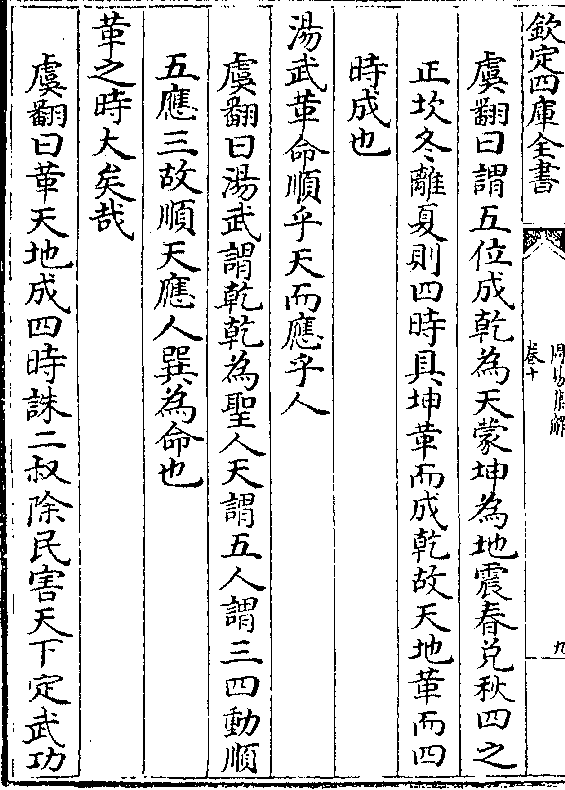 欽定四庫全書
周易集解
卷十
九
虞翻曰謂五位成乾為天蒙坤為地震春兌秋四之
正坎冬離夏則四時具坤革而成乾故天地革而四
時成也
湯武革命順乎天而應乎人
虞翻曰湯武謂乾乾為聖人天謂五人謂三四動順
五應三故順天應人巽為命也
革之時大矣哉
虞翻曰革天地成四時誅二叔除民害天下定武功